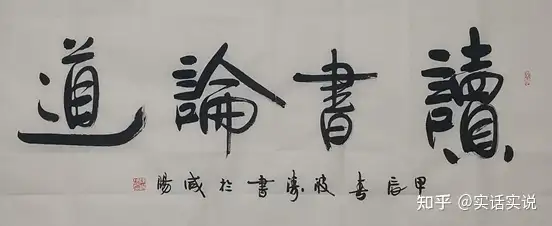 讀書論道
甲辰春波濤書於咸陽
知乎 @实话实说